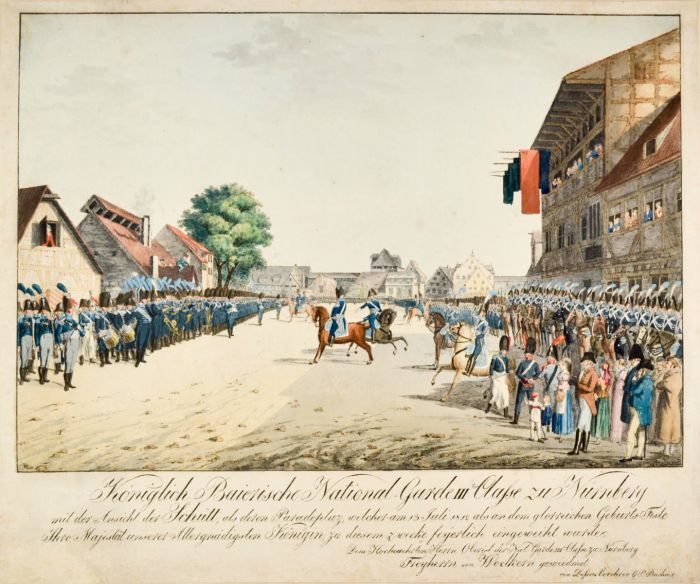 Königlich Baierische National Garde III Classe zu Nürnberg
mit der Ansicht der Schütt, als deren Paradeplaz, welcher am 13 Julii als an dem glorreichen Geburts Feste
Ihro Majestät unserer Allergnädigsten Königin zu diesem Zwecke feyerlich eingeweiht wurde.
Dem Hochverehrten Herrn Oberst der Nat. Garde III Classe zu Nürnberg
Freyherrn von Woelkern gewiedmet
von Dessen Verehrer